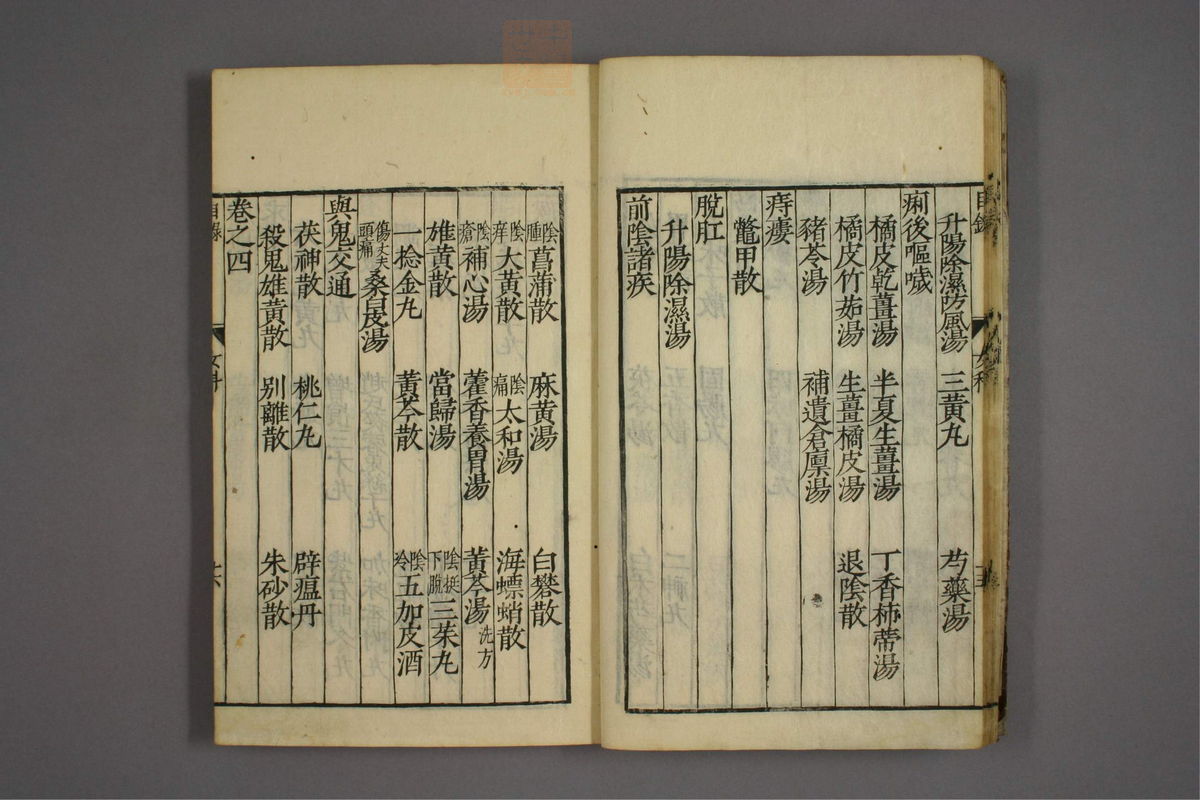 升陽除濕防風湯 三黃丸 芍藥湯
痢後嘔噦
橘皮乾薑湯 半夏生薑湯 丁香柿蒂湯
橘皮竹茹湯 生薑橘皮湯 退陰散
豬苓湯 補遺倉廩湯
痔瘻
鼈甲散
脫肛
升陽除濕湯
前陰諸疾
陰腫菖蒲散 麻黃湯 白礬散
陰痒大黃散 陰痛太和湯 海螵蛸散
陰瘡補心湯 藿香養胃湯 黃芩湯洗方
雄黃散 當歸湯 陰挺下脫三茱丸
一捻金丸 黃芩散 陰冷五加皮酒
傷丈夫頭痛桑白皮湯
與鬼交通
茯神散 桃仁丸 辟瘟丹
殺鬼雄黃散 別離散 朱砂散
卷之四